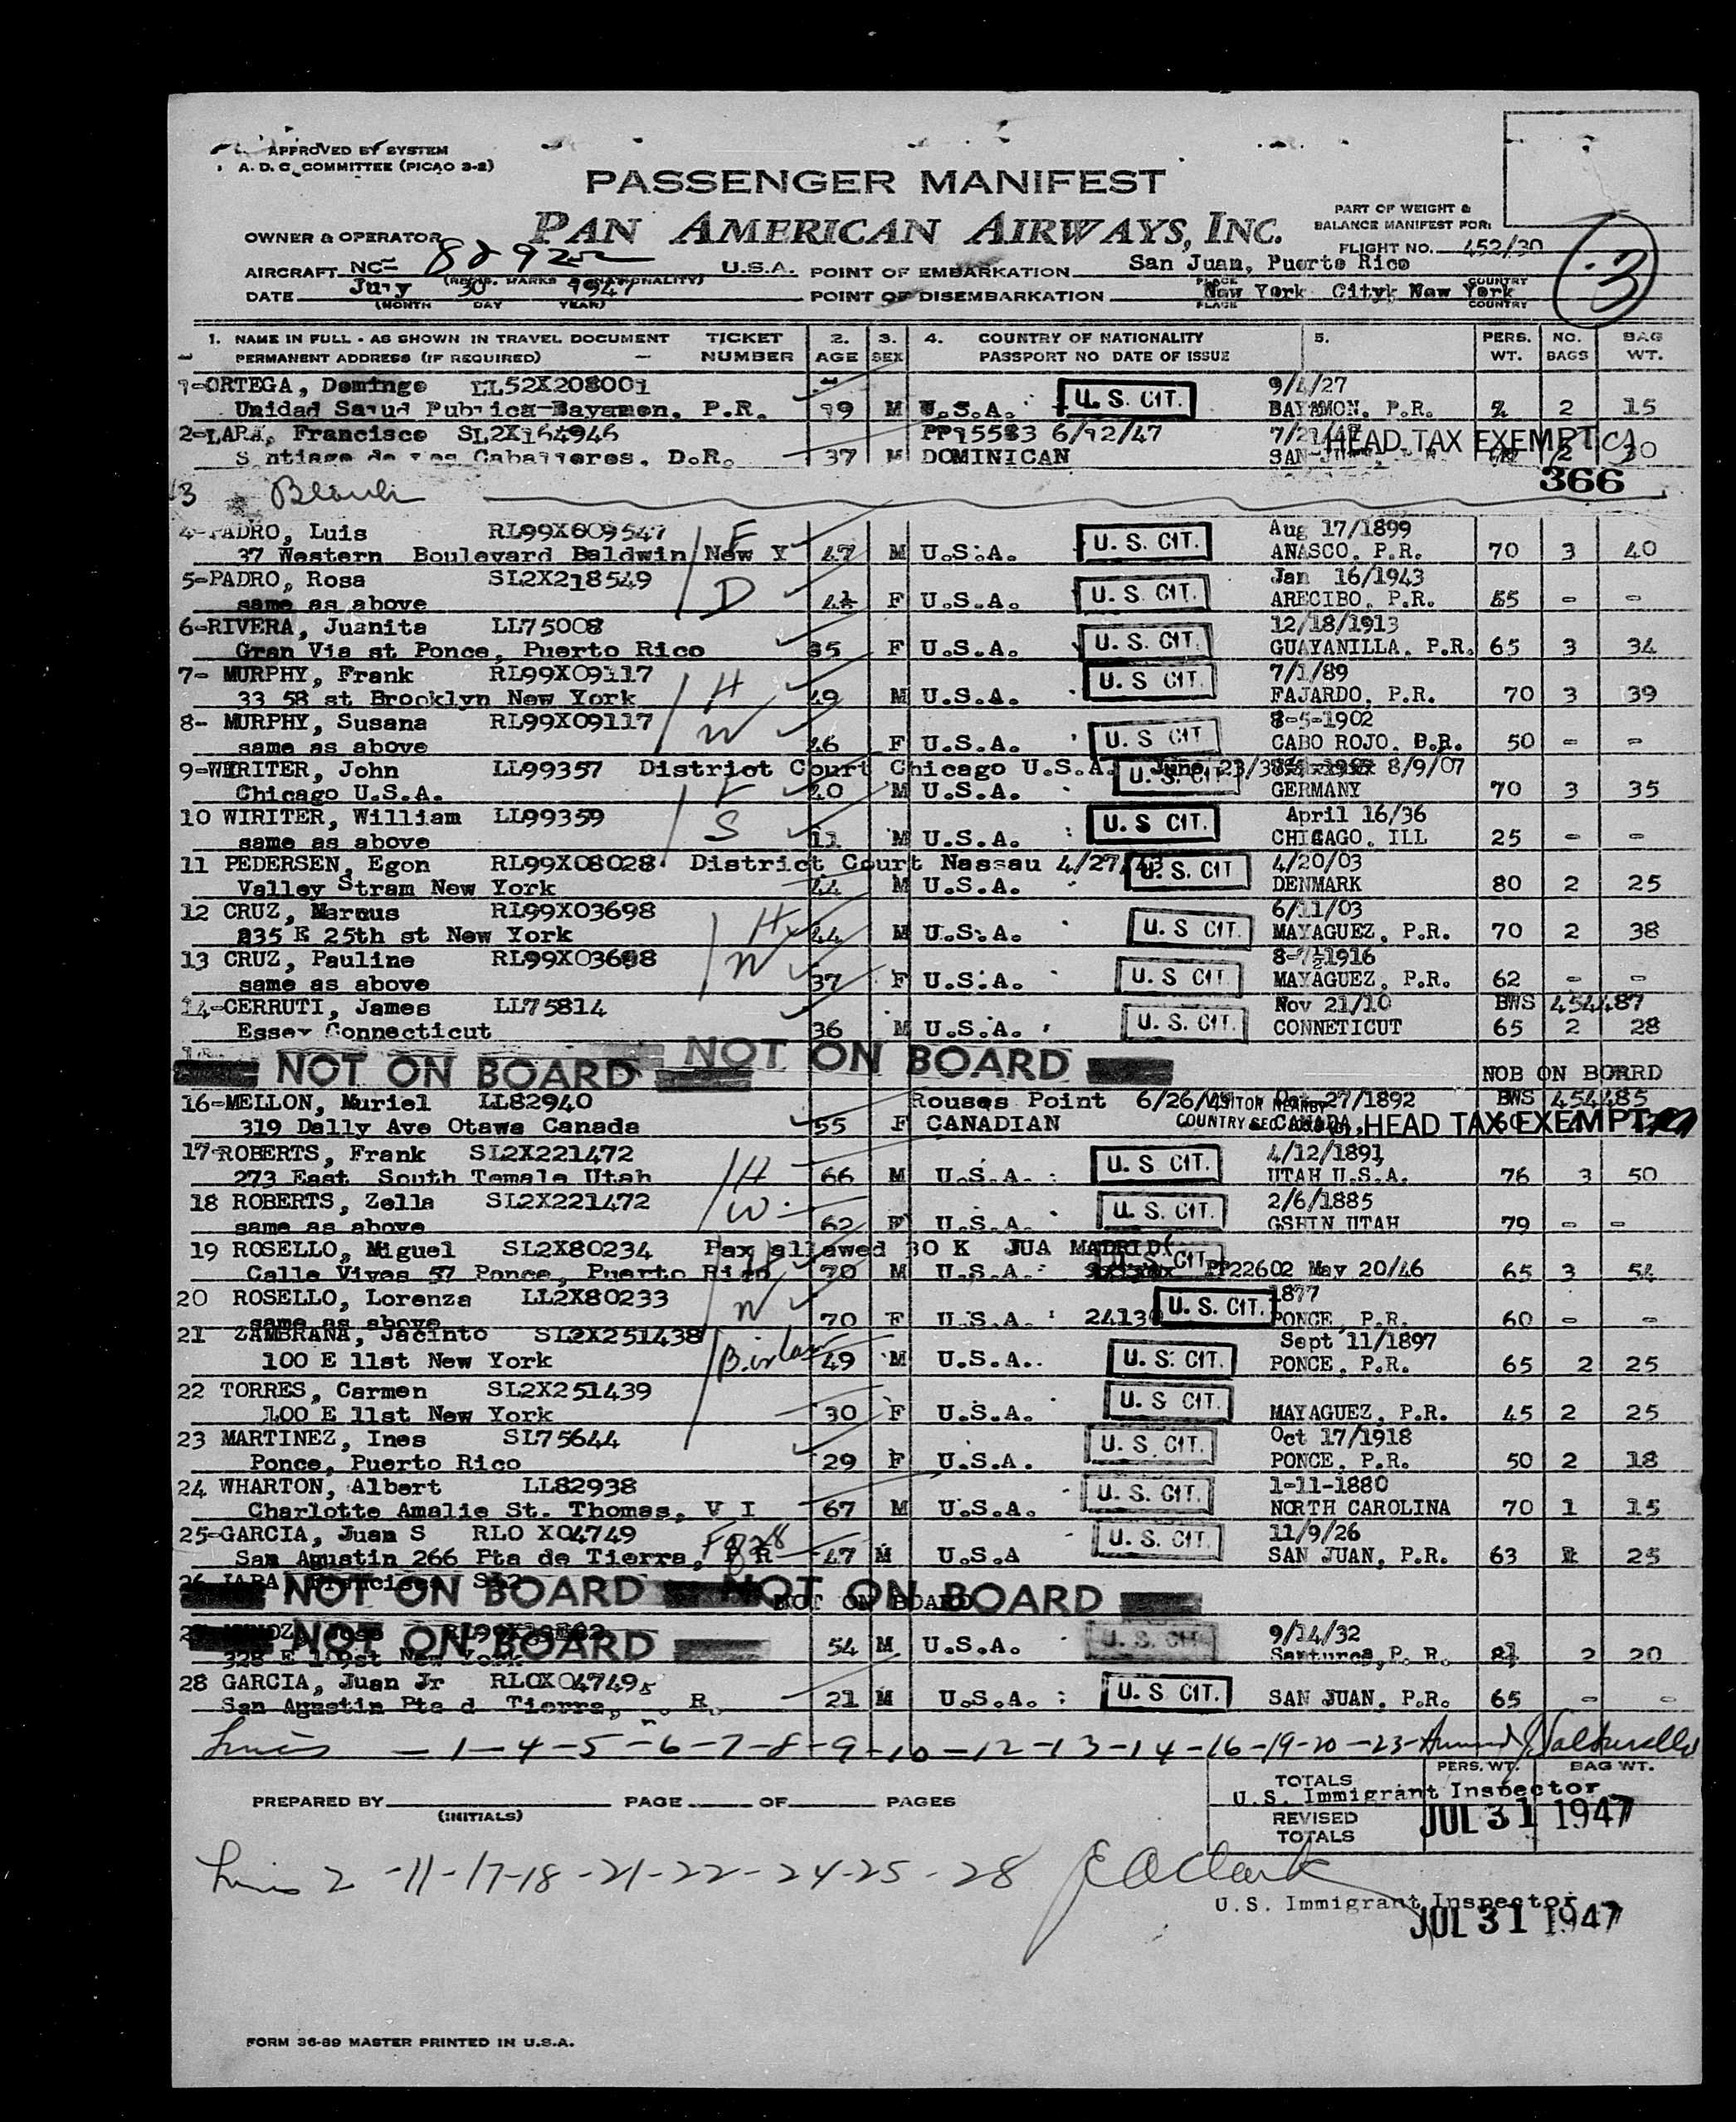 APPROVED BY SYSTEM
A. D. C. COMMITTEE (PICAO 3-2)
PASSENGER MANIFEST
PAN AMERICAN AIRWAYS, INC.
PART OF WEIGHT &
BALANCE MANIFEST FOR:
OWNER & OPERATOR
FLIGHT NO. 452/30
3
AIRCRAFT NC- 88922 U.S.A. POINT OF EMBARKATION San Juan, Puerto Rico
(REGIS. MARKS & NATIONALITY) PLACE COUNTRY
DATE July 30 1947 POINT OF DISEMBARKATION New York Cityk New York
(MONTH DAY YEAR) PLACE COUNTRY
1. NAME IN FULL - AS SHOWN IN TRAVEL DOCUMENT TICKET 2. 3. 4. COUNTRY OF NATIONALITY 5. PERS. NO. BAG
PERMANENT ADDRESS (IF REQUIRED) NUMBER AGE SEX PASSPORT NO DATE OF ISSUE WT. BAGS WT.
1-ORTEGA, Domingo LL52X208001 9/4/27
Unidad Salud Publica-Bayamon, P.R. 19 M U.S.A. U. S. CIT. BAYAMON, P.R. 2 15
2-LARA, Francisco SL2X164946 PP15583 6/12/47 HEAD TAX EXEMPT
Santiago de los Caballeros, D.R. 37 M DOMINICAN 2 30
366
3 Blank
4-PADRO, Luis RL99X609547 F Aug 17/1899
37 Western Boulevard Baldwin New Y 47 M U.S.A. U. S. CIT. ANASCO, P.R. 70 3 40
5-PADRO, Rosa SL2X218549 D Jan 16/1943
same as above 4½ F U.S.A. U. S. CIT. ARECIBO, P.R. - -
6-RIVERA, Juanita LL75008 12/18/1913
Gran Via st Ponce, Puerto Rico 35 F U.S.A. U. S. CIT. GUAYANILLA, P.R. 65 3 34
7- MURPHY, Frank RL99X09117 H 7/1/89
33 58 st Brooklyn New York 49 M U.S.A. U. S CIT. FAJARDO, P.R. 70 3 39
8- MURPHY, Susana RL99X09117 W 8-5-1902
same as above 46 F U.S.A. U. S CIT CABO ROJO, P.R. 50 - -
9-WIRITER, John LL99357 District Court Chicago U.S.A. June 23/38 8/9/07
Chicago U.S.A. F 40 M U.S.A. U. S CIT GERMANY 70 3 35
10 WIRITER, William LL99359 S April 16/36
same as above 11 M U.S.A. U. S CIT. CHICAGO, ILL 25 - -
11 PEDERSEN, Egon RL99X08028 District Court Nassau 4/27/ 4/20/03
Valley Stram New York 44 M U.S.A. U. S. CIT DENMARK 80 2 25
12 CRUZ, Marcus RL99X03698 H 6/11/03
235 E 25th st New York 44 M U.S.A. U. S CIT. MAYAGUEZ, P.R. 70 2 38
13 CRUZ, Pauline RL99X03698 W 1916
same as above 37 F U.S.A. U. S CIT. MAYAGUEZ, P.R. 62 - -
14-CERRUTI, James LL75814 Nov 21/10 BWS 454487
Essex Connecticut 36 M U.S.A. U. S. CIT. CONNETICUT 65 2 28
NOT ON BOARD NOT ON BOARD NOB ON BORRD
16-MELLON, Muriel LL82940 Rouses Point 6/26/ VISITOR NEARBY 27/1892 BWS 454485
319 Dally Ave Otawa Canada 55 F CANADIAN COUNTRY CANADA, HEAD TAX EXEMPT
17-ROBERTS, Frank SL2X221472 H 4/12/1891
273 East South Temple Utah 66 M U.S.A. U. S CIT. UTAH U.S.A. 76 3 50
18 ROBERTS, Zella SL2X221472 W 2/6/1885
same as above 62 F U.S.A. U. S. CIT. UTAH 79 - -
19 ROSELLO, Miguel SL2X80234 Pax allowed 30 K JUA MADRID
Calle Vives 57 Ponce, Puerto Rico 70 M U.S.A. CIT. PP22602 May 20/46 65 3 54
20 ROSELLO, Lorenza LL2X80233 W 1877
same as above 70 F U.S.A. 2413 U. S. CIT. PONCE, P.R. 60 - -
21 ZAMBRANA, Jacinto SL2X251438 Sept 11/1897
100 E 11st New York B. in law 49 M U.S.A. U. S. CIT. PONCE, P.R. 65 2 25
22 TORRES, Carmen SL2X251439
100 E 11st New York 30 F U.S.A. U. S CIT. MAYAGUEZ, P.R. 45 2 25
23 MARTINEZ, Ines SL75644 Oct 17/1918
Ponce, Puerto Rico 29 F U.S.A. U. S. CIT. PONCE, P.R. 50 2 18
24 WHARTON, Albert LL82938 1-11-1880
Charlotte Amalie St. Thomas, V I 67 M U.S.A. U. S. CIT. NORTH CAROLINA 70 1 15
25-GARCIA, Juan S RLO X04749 11/9/26
San Agustin 266 Pta de Tierra, P R 47 M U.S.A U. S. CIT. SAN JUAN, P.R. 63 25
NOT ON BOARD NOT ON BOARD
NOT ON BOARD
NOT ON BOARD 54 M U.S.A. U. S. CIT 9/14/32
328 E New York Santurce, P. R. 2 20
28 GARCIA, Juan Jr RLOX04749
San Agustin Pta d Tierra, R. 21 M U.S.A. U. S CIT. SAN JUAN, P.R. 65 - -
Lines - 1 - 4 - 5 - 6 - 7 - 8 - 9 - 10 - 12 - 13 - 14 - 16 - 19 - 20 - 23 -
PERS. WT. BAG WT.
TOTALS
U.S. Immigrant Inspector
PREPARED BY PAGE OF PAGES
(INITIALS)
REVISED
TOTALS
JUL 31 1947
Lines 2 - 11 - 17 - 18 - 21 - 22 - 24 - 25 - 28 Clark
U.S. Immigrant Inspector
JUL 31 1947
FORM 36-89 MASTER PRINTED IN U.S.A.